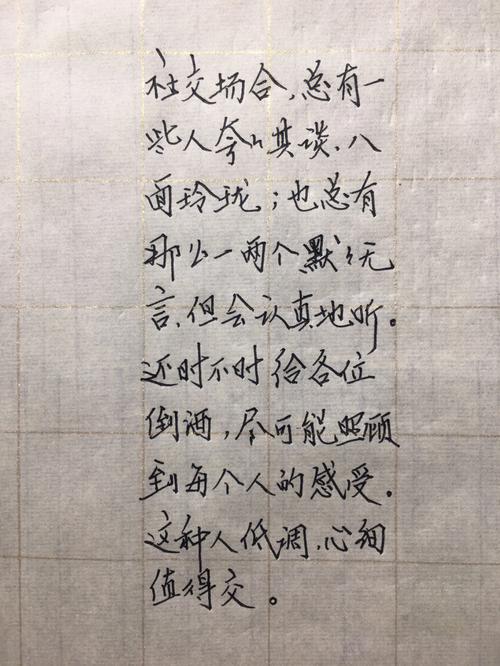 社交场合，总有一
些人夸々其谈、八
面玲珑；也总有
那么一两个默々无
言、但会认真地听。
还时不时给各位
倒酒，尽可能照顾
到每个人的感受。
这种人低调、心细
值得交。